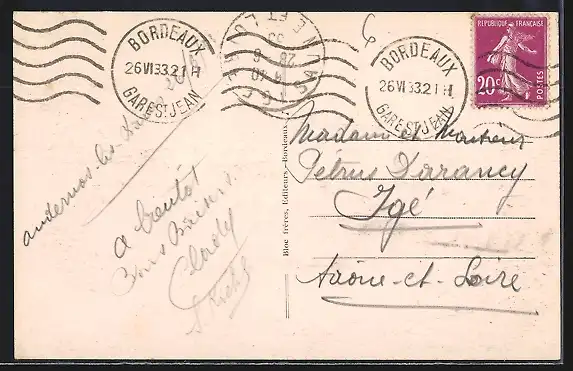 BORDEAUX
26 VI 33.21 H
GARE ST JEAN
BORDEAUX
26 VI 33.21 H
GARE ST JEAN
REPUBLIQUE FRANÇAISE
20c
POSTES
andernos-les
a bientôt
Bons Baisers
Clady
Madame et Monsieur
Petrus Darancy
Igé
Saône-et-Loire
Bloc frères, Editeurs - Bordeaux